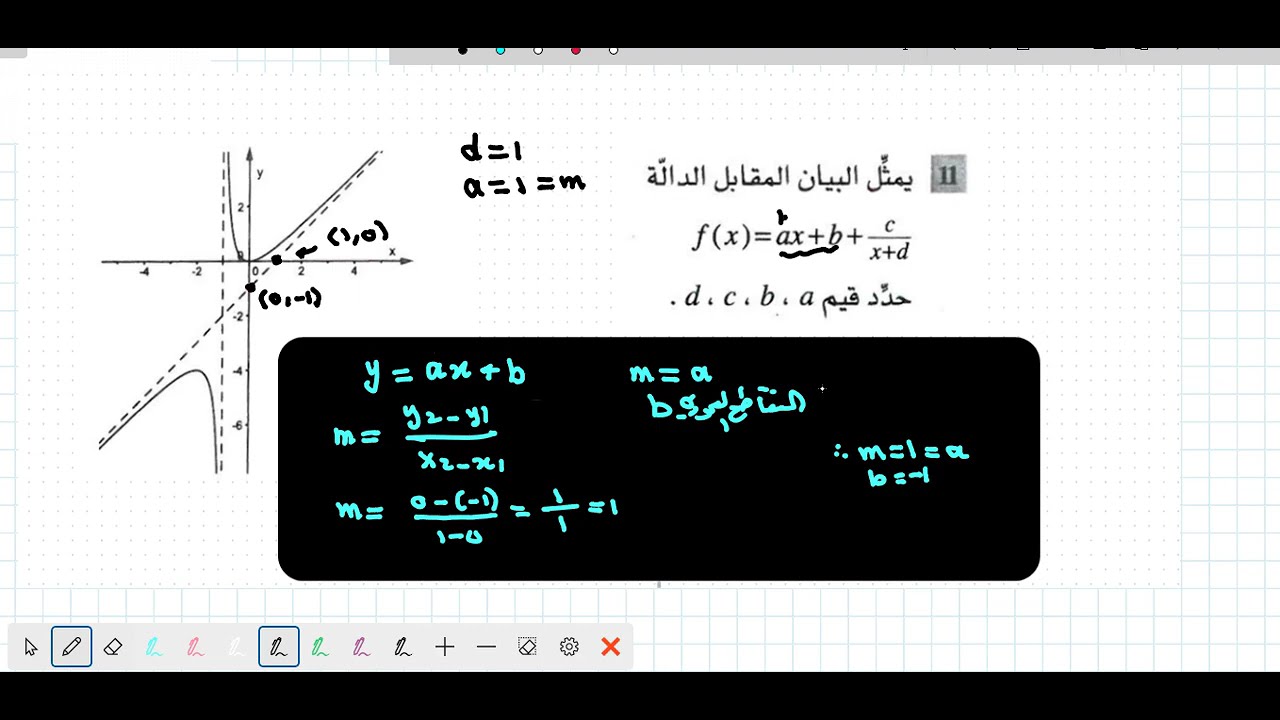 11 يمثِّل البيان المقابل الدالّة
f(x)=ax+b+\frac{c}{x+d}
حدِّد قيم d ، c ، b ، a .
d=1
a=1=m
y
2
(1,0)
x
-4 -2 0 2 4
(0,-1)
-2
-4
-6
y = ax+b
m = a
m = \frac{y2-y1}{x2-x1}
b
∴ m=1=a
b=-1
m = \frac{0-(-1)}{1-0} = \frac{1}{1} = 1